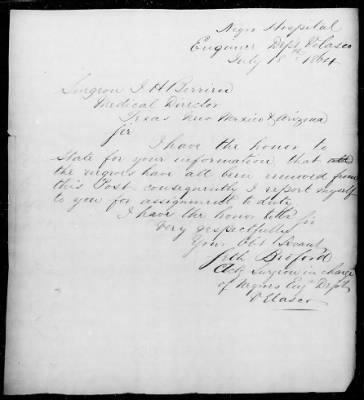 Negro Hospital
Engineer Dept Velasco
July 18th 1864
Surgeon J. H Berrien
Medical Director
Texas New Mexico & Arizona
Sir
I have the honor to
State for your information that
the negroes have all been removed from
this Post consequently I report myself
to you for assignment to duty
I have the honor to be Sir
Very respectfully
Your Obt Servant
Seth Bedford
Actg Surgeon in charge
of Negros Eng Dept
Velasco